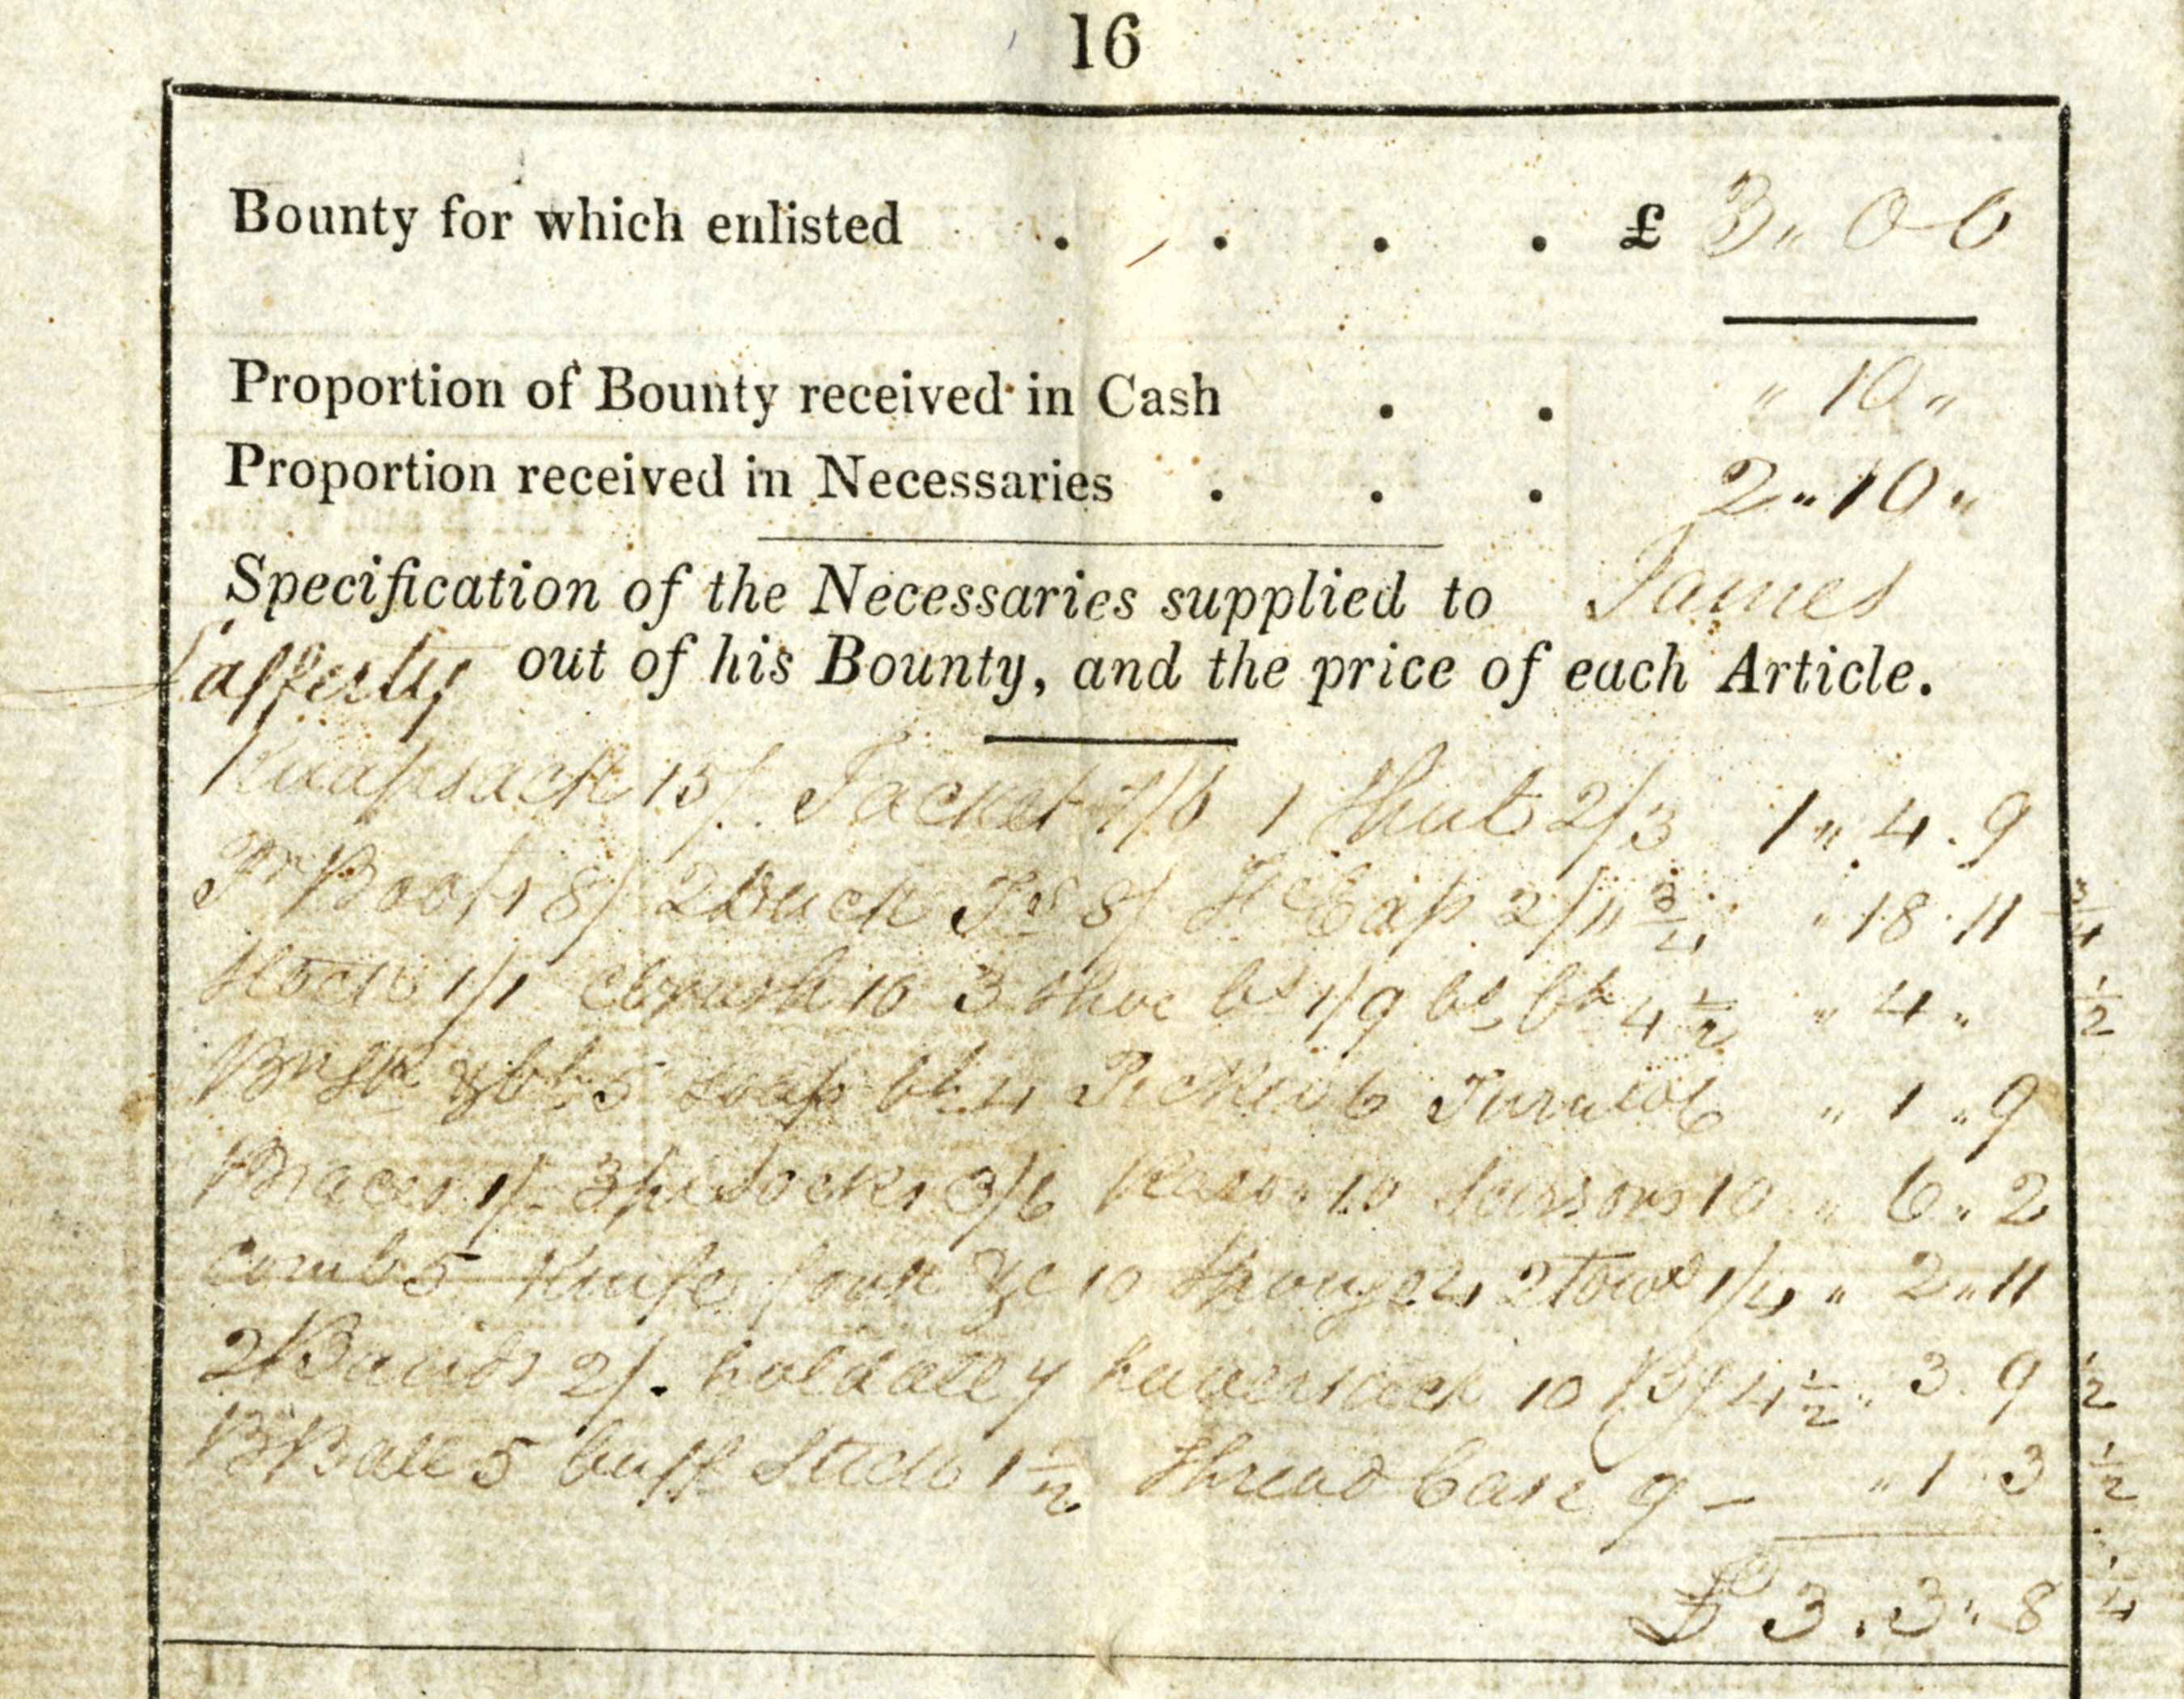 16
Bounty for which enlisted . . . . £ 3 " 0 - 0
Proportion of Bounty received in Cash . . " 10 "
Proportion received in Necessaries . . . 2 " 10 "
Specification of the Necessaries supplied to James
Lafferty out of his Bounty, and the price of each Article.
Knapsack 15/. Jacket 7/6 1 Shirt 2/3 1 " 4 . 9
Pr Boots 8/ 2 Duck Trs 8/ Cap 2/11 3/4 " 18 . 11 3/4
Stock 1/1 brush 10 3 Shoe bs 1/9 4 1/2 " 4 " 1/2
5 soap 4 " 1 " 9
Braces 1/- 3 pr Socks 3/6 Razor 10 Scissors 10 " 6 " 2
comb 5 Knife fork &c 10 Spunge 4 2 Tows 1/4 " 2 " 11
2 Bands 2/. holdall 7 haversack 10 4 1/2 " 3 . 9 1/2
B Ball 5 buff Stick 1 1/2 Thread Case 9 - " 1 . 3 1/2
£ 3 . 3 " 8 1/4